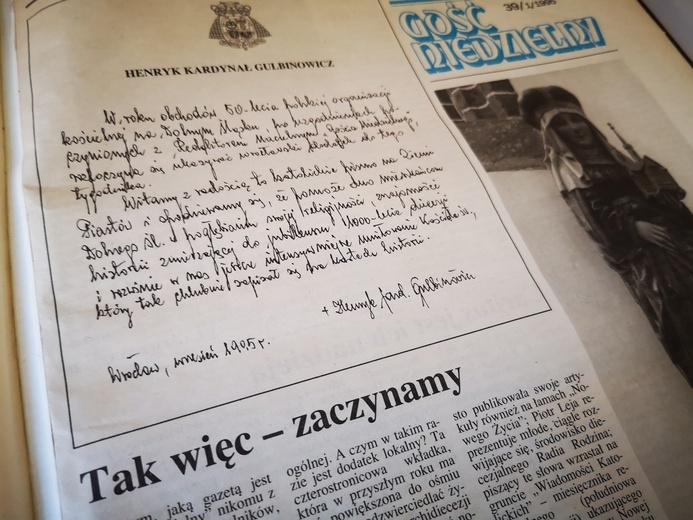 GOŚĆ
NIEDZIELNY
39/1/1995
HENRYK KARDYNAŁ GULBINOWICZ
W roku obchodów 50-lecia polskiej organizacji
kościelnej na Dolnym Śląsku, po uzgodnieniach po-
czynionych z Redaktorem Naczelnym Gościa Niedzielnego,
rozpoczyna się ukazywać wrocławski dodatek do tego
tygodnika.
Witamy z radością to katolickie pismo na Ziemi
Piastów i spodziewamy się, że pomoże ono mieszkańcom
Dolnego Śl. w pogłębianiu swojej religijności, znajomości
historii zmierzającej do jubileuszu 1000-lecia diecezji
i rozwinie w nas jeszcze intensywniejsze umiłowanie Kościoła,
który tak chlubnie zapisał się na kartach historii.
+ Henryk kard. Gulbinowicz
Wrocław, wrzesień 1995 r.
Tak więc – zaczynamy
jaką gazetą jest
nikomu z
ogólnej. A czym w takim ra-
zie jest dodatek lokalny? Ta
czterostronicowa wkładka,
która w przyszłym roku ma
powiększona do ośmiu
odzwierciedlać ży-
archidiecezji
sto publikowała swoje arty-
kuły również na łamach „No-
wego Życia”; Piotr Leja re-
prezentuje młode, ciągle roz-
wijające się, środowisko die-
cezjalnego Radia Rodzina;
piszący te słowa wzrastał na
gruncie „Wiadomości Kato-
lickich” – miesięcznika re-
(południowa
ukazującego
Nowej